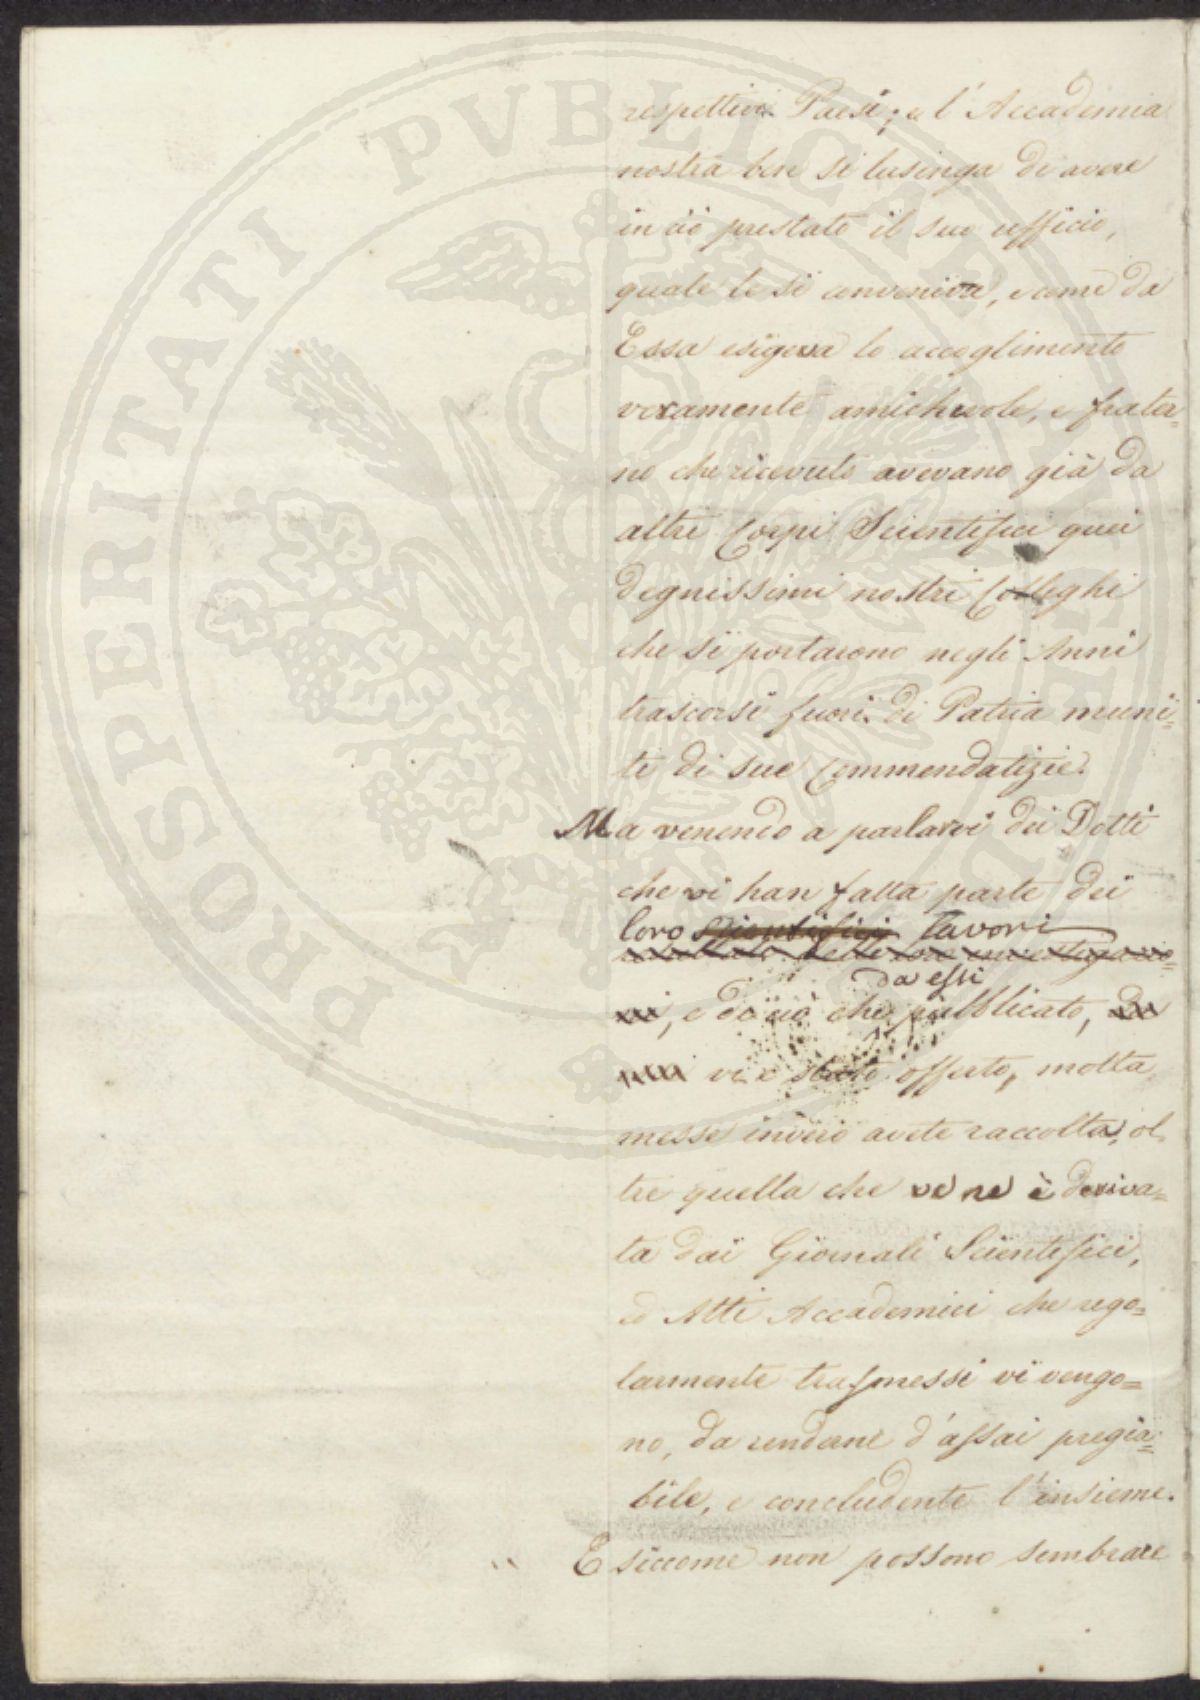 respettivi Paesi; e l'Accademia
nostra ben si lusinga di avere
in ciò prestato il suo ufficio,
quale le si conveniva, e come da
Essa esigeva lo accoglimento
veramente amichevole, e frater=
no che ricevuto avevano già da
altri Corpi Scientifici quei
degnissimi nostri Colleghi
che si portarono negli Anni
trascorsi fuori di Patria muni=
ti di sue Commendatizie.
Ma venendo a parlarvi dei Dotti
che vi han fatta parte dei
loro scientifici lavori
risultato delle loro investigazio=
da essi
ni, e di ciò che pubblicato, da
vi è stato offerto, molta
messe invero avete raccolta, ol
tre quella che ve ne è deriva=
ta dai Giornali Scientifici,
ed Atti Accademici che rego=
larmente trasmessi vi vengo=
no, da renderne d'assai pregia=
bile, e concludente l'insieme.
E siccome non possono sembrare
PROSPERITATI PVBLICAE